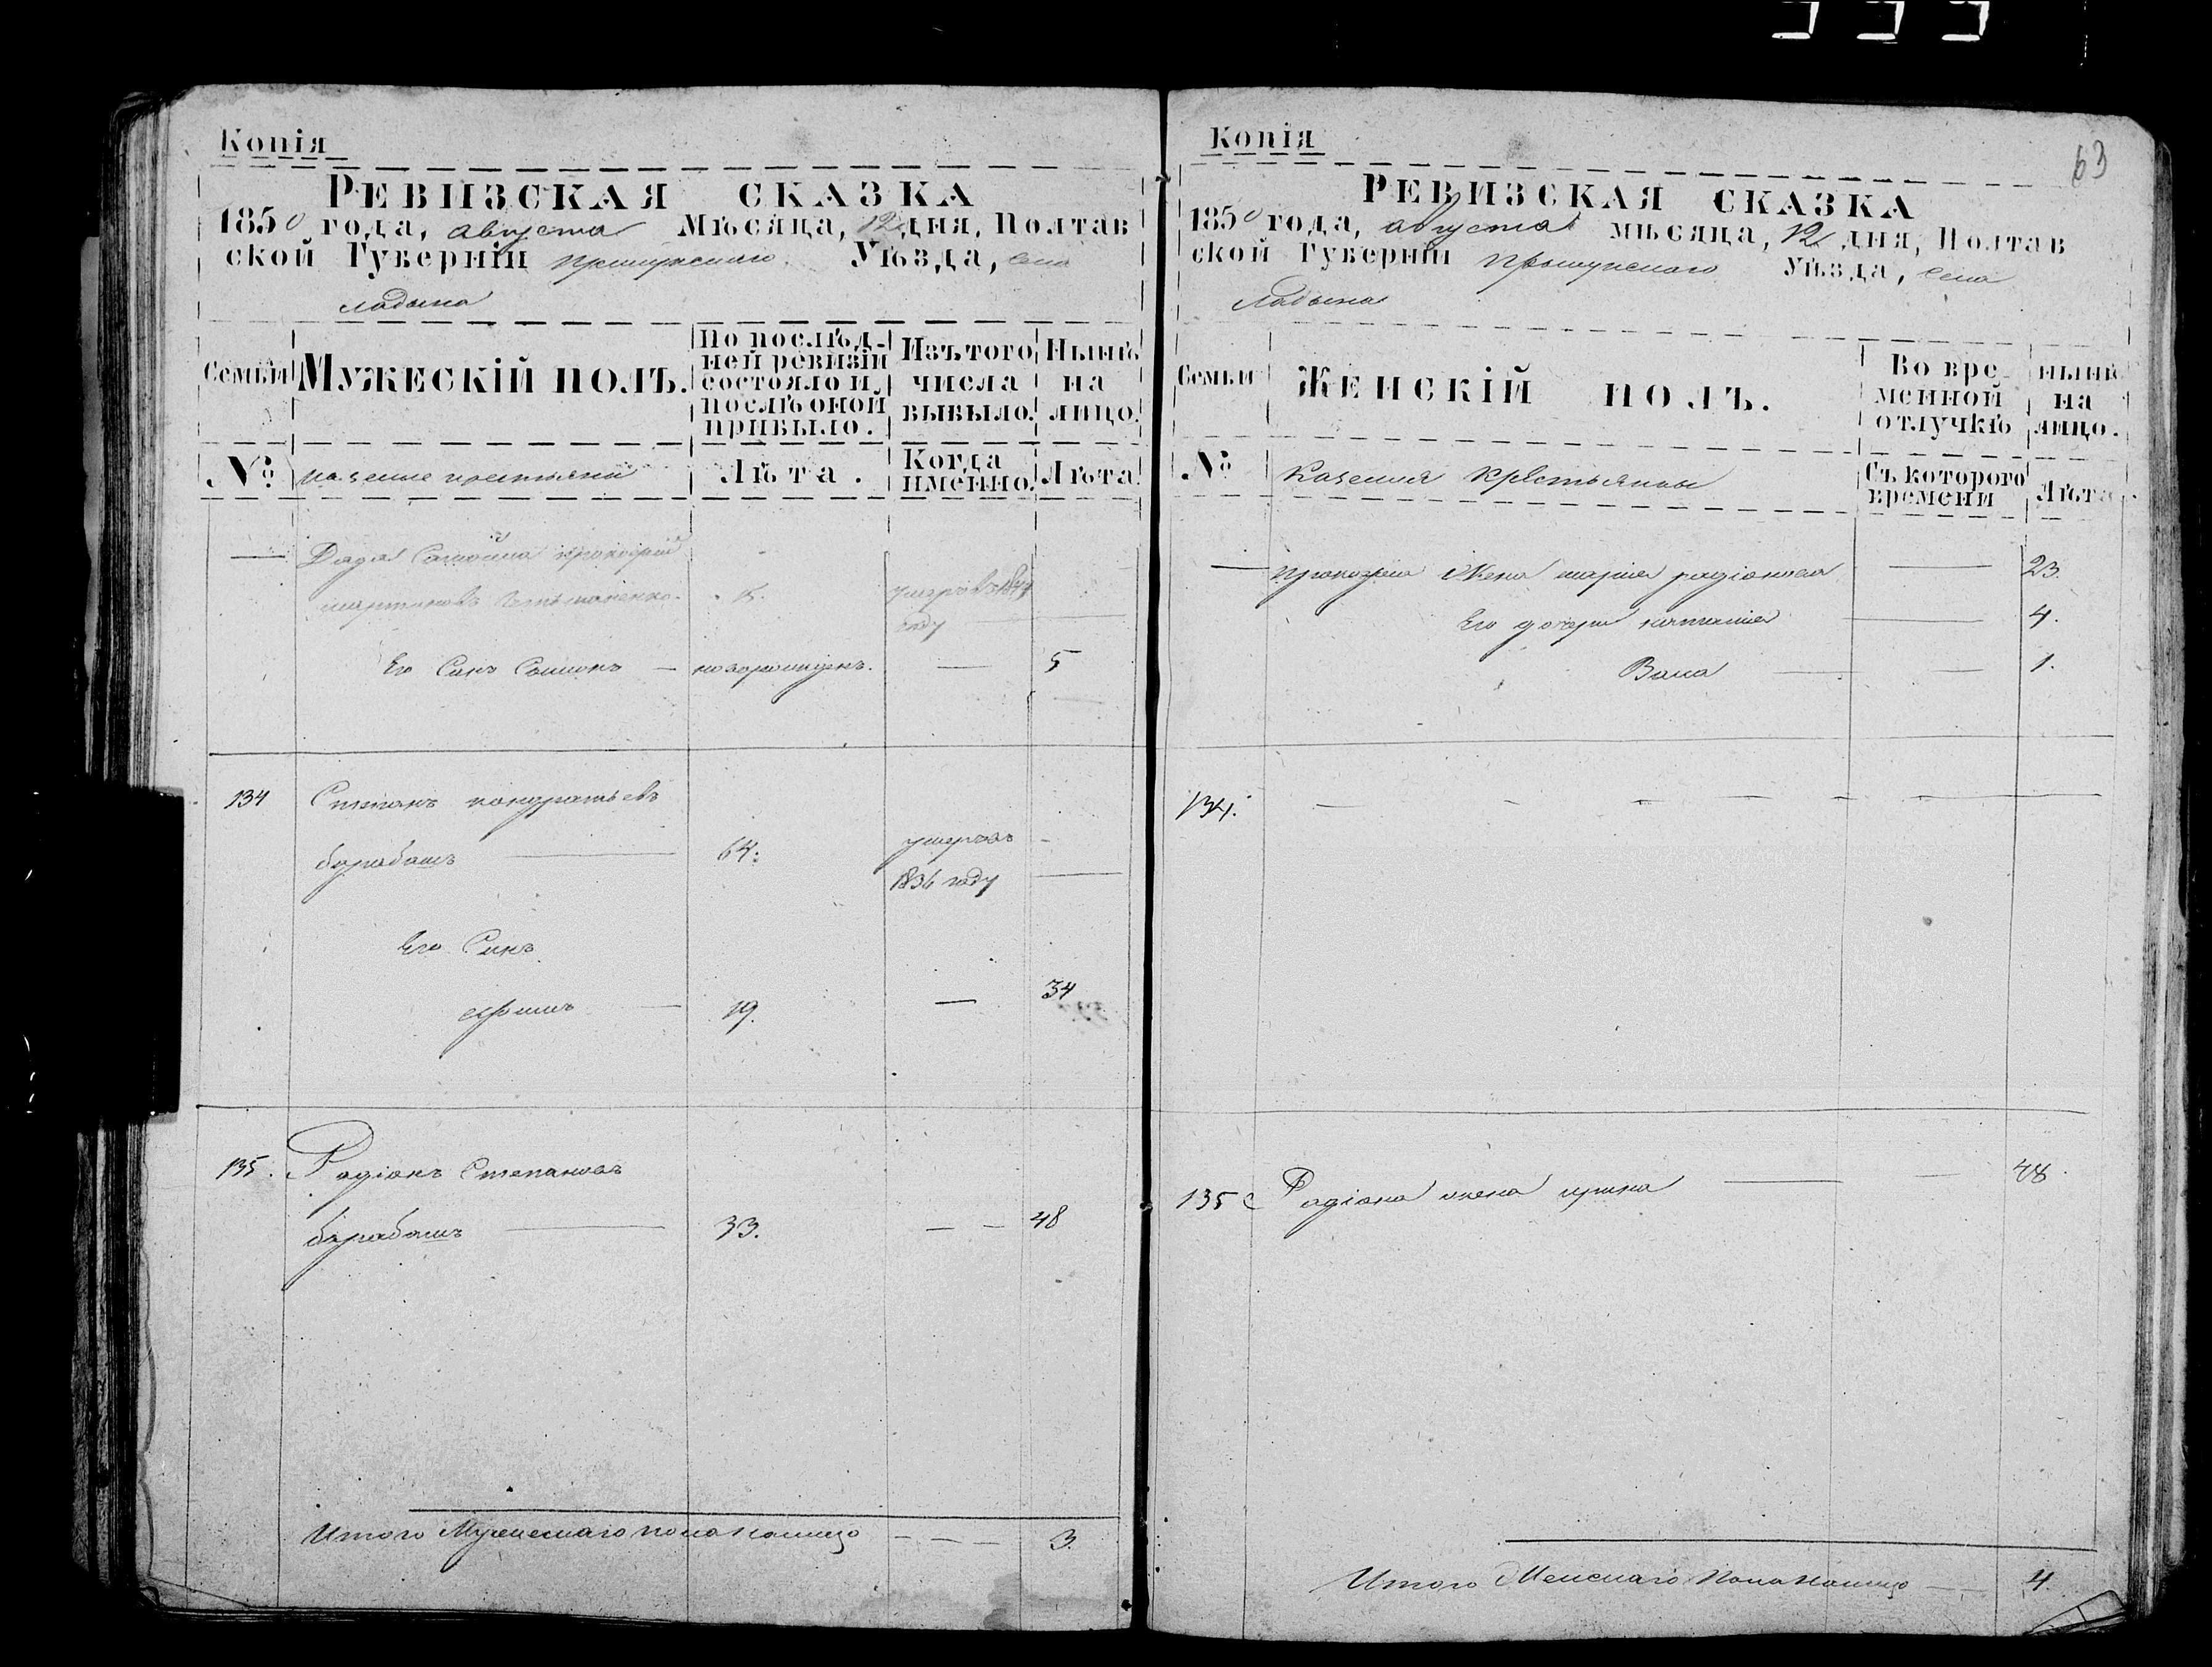 Копія
РЕВИЗСКАЯ СКАЗКА
1850 года, августа Мѣсяца, 12 дня, Полтав
ской Губерніи Прилуцкаго Уѣзда, села
Ладына
Семьи
МУЖЕСКІЙ ПОЛЪ.
По послѣд-
ней ревизіи
состояло и
послѣ оной
прибыло.
Изъ того
числа
выбыло.
Нынѣ
на
лицо.
№
казенные крестьяне
Лѣта.
Когда
именно.
Лѣта.
— Дядя Самойла Прокофій
умеръ въ
году
Его Сынъ Симонъ — новорожденъ. — 5
134 Степанъ кондратьевъ
барабашъ — 64. умеръ въ
1836 году
Его Сынъ
19. — 34
135. Радіонъ Степановъ
барабашъ — 33. — — 48
Итого Мужескаго пола налицо — — — 3.
Копія
63
РЕВИЗСКАЯ СКАЗКА
1850 года, августа мѣсяца, 12 дня, Полтав
ской Губерніи Прилуцкаго Уѣзда, села
Ладына
Семьи
ЖЕНСКІЙ ПОЛЪ.
Во вре-
менной
отлучкѣ
нынѣ
на
лицо.
№
Казенныя Крестьянки
Съ которого
времени
Лѣта.
— Прокофія жена марія радіонова — 23.
Его дочери — 4.
— — 1.
134. — — — — — —
135 Радіона жена ирина — — 48.
Итого Женскаго Пола налицо — — 4.